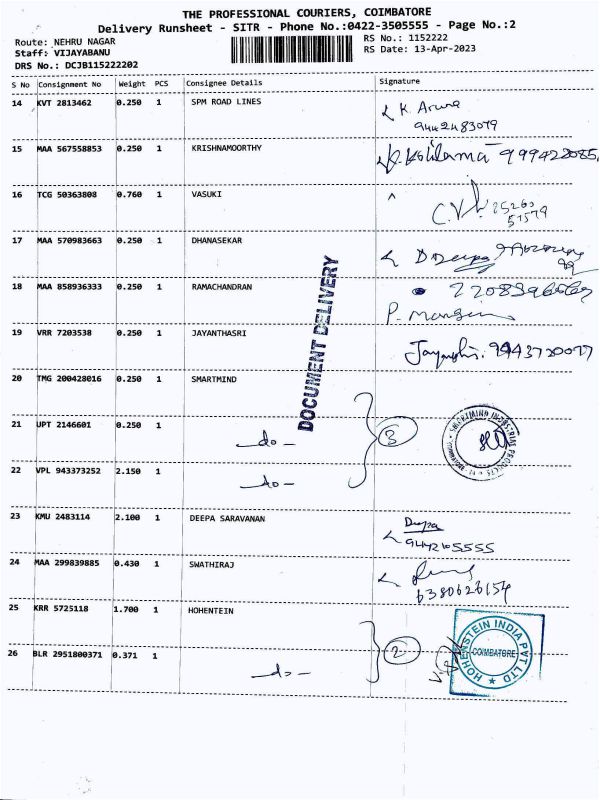 THE PROFESSIONAL COURIERS, COIMBATORE
Delivery Runsheet - SITR - Phone No.:0422-3505555 - Page No.:2
Route: NEHRU NAGAR
RS No.: 1152222
Staff: VIJAYABANU
RS Date: 13-Apr-2023
DRS No.: DCJB115222202
S No Consignment No Weight PCS Consignee Details Signature
14 KVT 2813462 0.250 1 SPM ROAD LINES K. Aruna
9442483079
15 MAA 567558853 0.250 1 KRISHNAMOORTHY
16 TCG 50363808 0.760 1 VASUKI
17 MAA 570983663 0.250 1 DHANASEKAR D Deepa
18 MAA 858936333 0.250 1 RAMACHANDRAN
19 VRR 7203538 0.250 1 JAYANTHASRI
20 TMG 200428016 0.250 1 SMARTMIND
21 UPT 2146601 0.250 1 -do-
22 VPL 943373252 2.150 1 -do-
3
DOCUMENT DELIVERY
SMARTMIND INDUSTRIAL PRODUCTS
23 KMU 2483114 2.100 1 DEEPA SARAVANAN Deepa
24 MAA 299839885 0.430 1 SWATHIRAJ
25 KRR 5725118 1.700 1 HOHENTEIN
26 BLR 2951800371 0.371 1 -do-
2
HOHENSTEIN INDIA PVT LTD
COIMBATORE